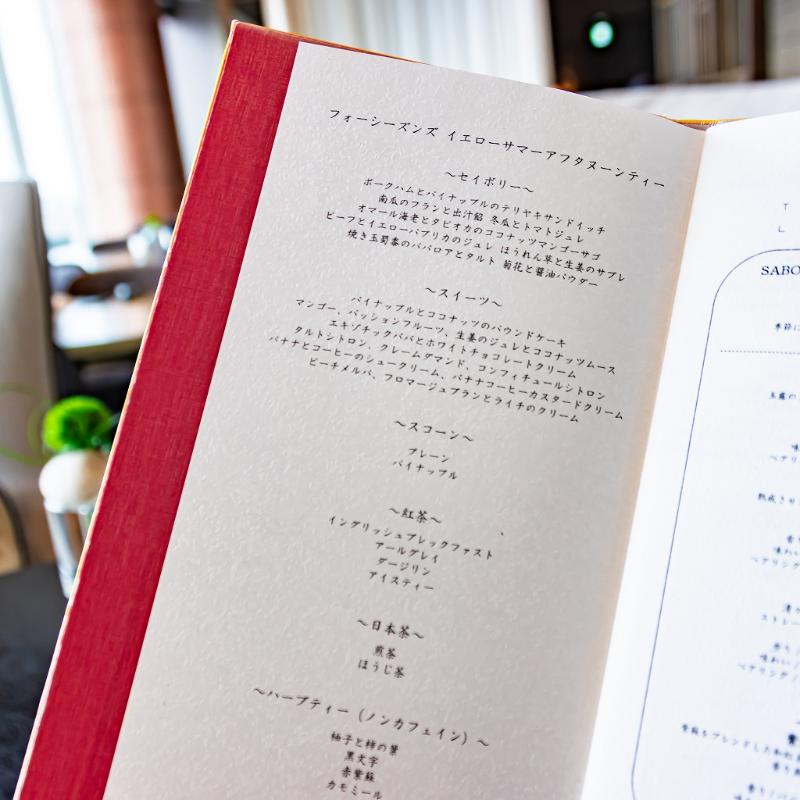 フォーシーズンズ イエローサマーアフタヌーンティー
～セイボリー～
ポークハムとパイナップルのテリヤキサンドイッチ
南瓜のフランと出汁餡 冬瓜とトマトジュレ
オマール海老とタピオカのココナッツマンゴーサゴ
ビーフとイエローパプリカのジュレ ほうれん草と生姜のサブレ
焼き玉蜀黍のババロアとタルト 菊花と醤油パウダー
～スイーツ～
パイナップルとココナッツのパウンドケーキ
マンゴー、パッションフルーツ、生姜のジュレとココナッツムース
エキゾチックババとホワイトチョコレートクリーム
タルトシトロン、クレームダマンド、コンフィチュールシトロン
バナナとコーヒーのシュークリーム、バナナコーヒーカスタードクリーム
ピーチメルバ、フロマージュブランとライチのクリーム
～スコーン～
プレーン
パイナップル
～紅茶～
イングリッシュブレックファスト
アールグレイ
ダージリン
アイスティー
～日本茶～
煎茶
ほうじ茶
～ハーブティー（ノンカフェイン）～
柚子と柿の葉
黒文字
赤紫蘇
カモミール
SABO
季節に
玉露の
ペアリン
熟成させ
味わい
ペアリング
ストレー
香り/
味わい/
ペアリング/